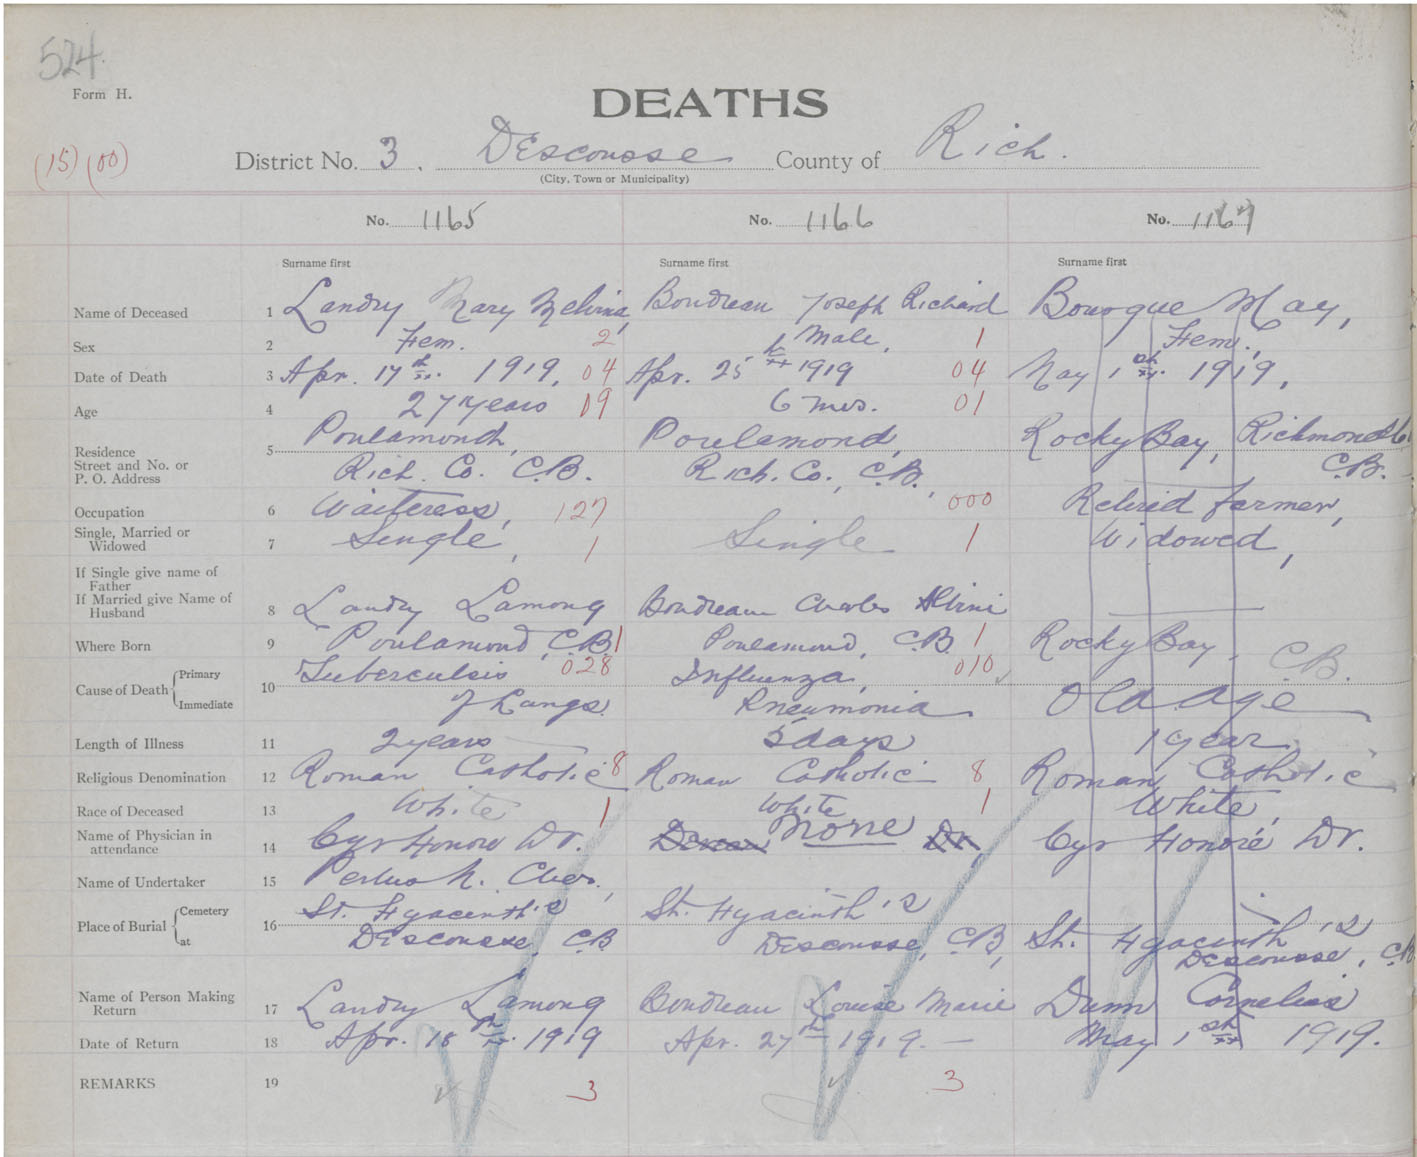 524.
Form H.
DEATHS
(15) (00) District No. 3. Descousse County of Rich.
(City, Town or Municipality)
No. 1165 No. 1166 No. 1167
Surname first Surname first Surname first
Name of Deceased 1 Landry Mary Melvina, Boudreau Joseph Richard Bourque May,
Sex 2 Fem. 2 Male, 1 Fem.,
Date of Death 3 Apr. 17th 1919, 04 Apr. 25th 1919 04 May 1st 1919,
Age 4 27 years 09 6 mos. 01
Residence Street and No. or P. O. Address 5 Poulamond, Poulamond, Rocky Bay, Richmond Co
Rich. Co. C.B. Rich. Co., C.B., C.B.
Occupation 6 Waitress, 127 000 Retired farmer,
Single, Married or Widowed 7 Single, 1 Single 1 Widowed,
If Single give name of
Father
If Married give Name of
Husband 8 Landry Lamong Boudreau Charles Albini
Where Born 9 Poulamond, C.B. 1 Poulamond, C.B. 1 Rocky Bay, C.B.
Cause of Death Primary 10 Tuberculsis 028 Influenza, 010
Immediate of Lungs. Pneumonia Old age
Length of Illness 11 2 years 5 days 1 year
Religious Denomination 12 Roman Catholic 8 Roman Catholic 8 Roman Catholic
Race of Deceased 13 White 1 White 1 White,
Name of Physician in attendance 14 Cyr Honoré Dr. None Dr. Cyr Honoré Dr.
Name of Undertaker 15 Chas.,
Place of Burial Cemetery 16 St. Hyacinth's St. Hyacinth's St. Hyacinth's
at Descousse, C.B. Descousse, C.B., Descousse, C.B.
Name of Person Making Return 17 Landry Lamong Boudreau Louise Marie Dunn Cornelius
Date of Return 18 Apr. 18th 1919 Apr. 27th 1919. May 1st 1919.
REMARKS 19 3 3